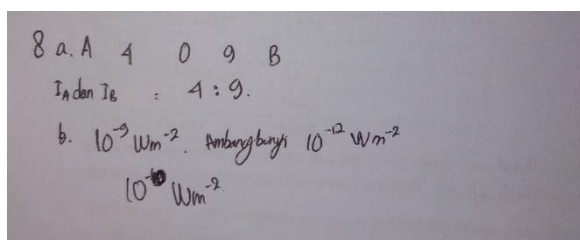 8 a. A 4 0 9 B
I_A dan I_B : 4 : 9.
b. 10⁻⁹ Wm⁻². Ambang bunyi 10⁻¹² Wm⁻²
Wm⁻²